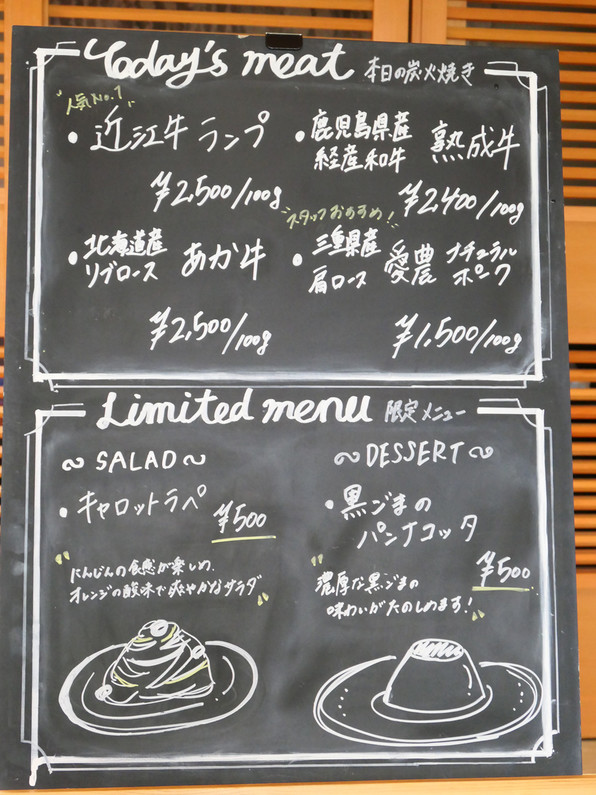 Today's meat 本日の炭火焼き
"人気No.1"
・近江牛 ランプ
¥2,500/100g
・鹿児島県産
経産和牛 熟成牛
¥2,400/100g
・北海道産
リブロース あか牛
¥2,500/100g
スタッフおすすめ!
・三重県産
肩ロース 愛農 ナチュラル
ポーク
¥1,500/100g
Limited menu 限定メニュー
~ SALAD ~
・キャロットラペ
¥500
"にんじんの食感が楽しめ、
オレンジの酸味で爽やかなサラダ"
~ DESSERT ~
・黒ごまの
パンナコッタ
¥500
"濃厚な黒ごまの
味わいがたのしめます!"